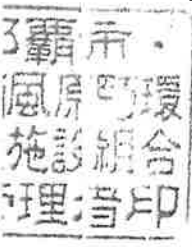 覇市・
風原町環
施設組合
理者印